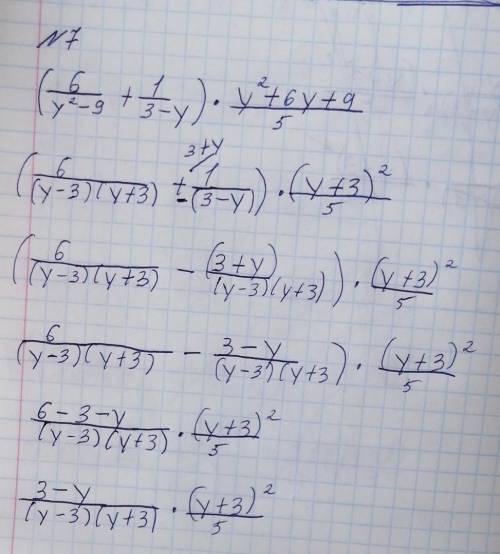 №7
(6/(y²-9) + 1/(3-y)) · (y²+6y+9)/5
(6/((y-3)(y+3)) ± 1^(3+y)/(-(3-y))) · (y+3)²/5
(6/((y-3)(y+3)) - (3+y)/((y-3)(y+3))) · (y+3)²/5
6/((y-3)(y+3)) - (3-y)/((y-3)(y+3))) · (y+3)²/5
(6-3-y)/((y-3)(y+3)) · (y+3)²/5
(3-y)/((y-3)(y+3)) · (y+3)²/5